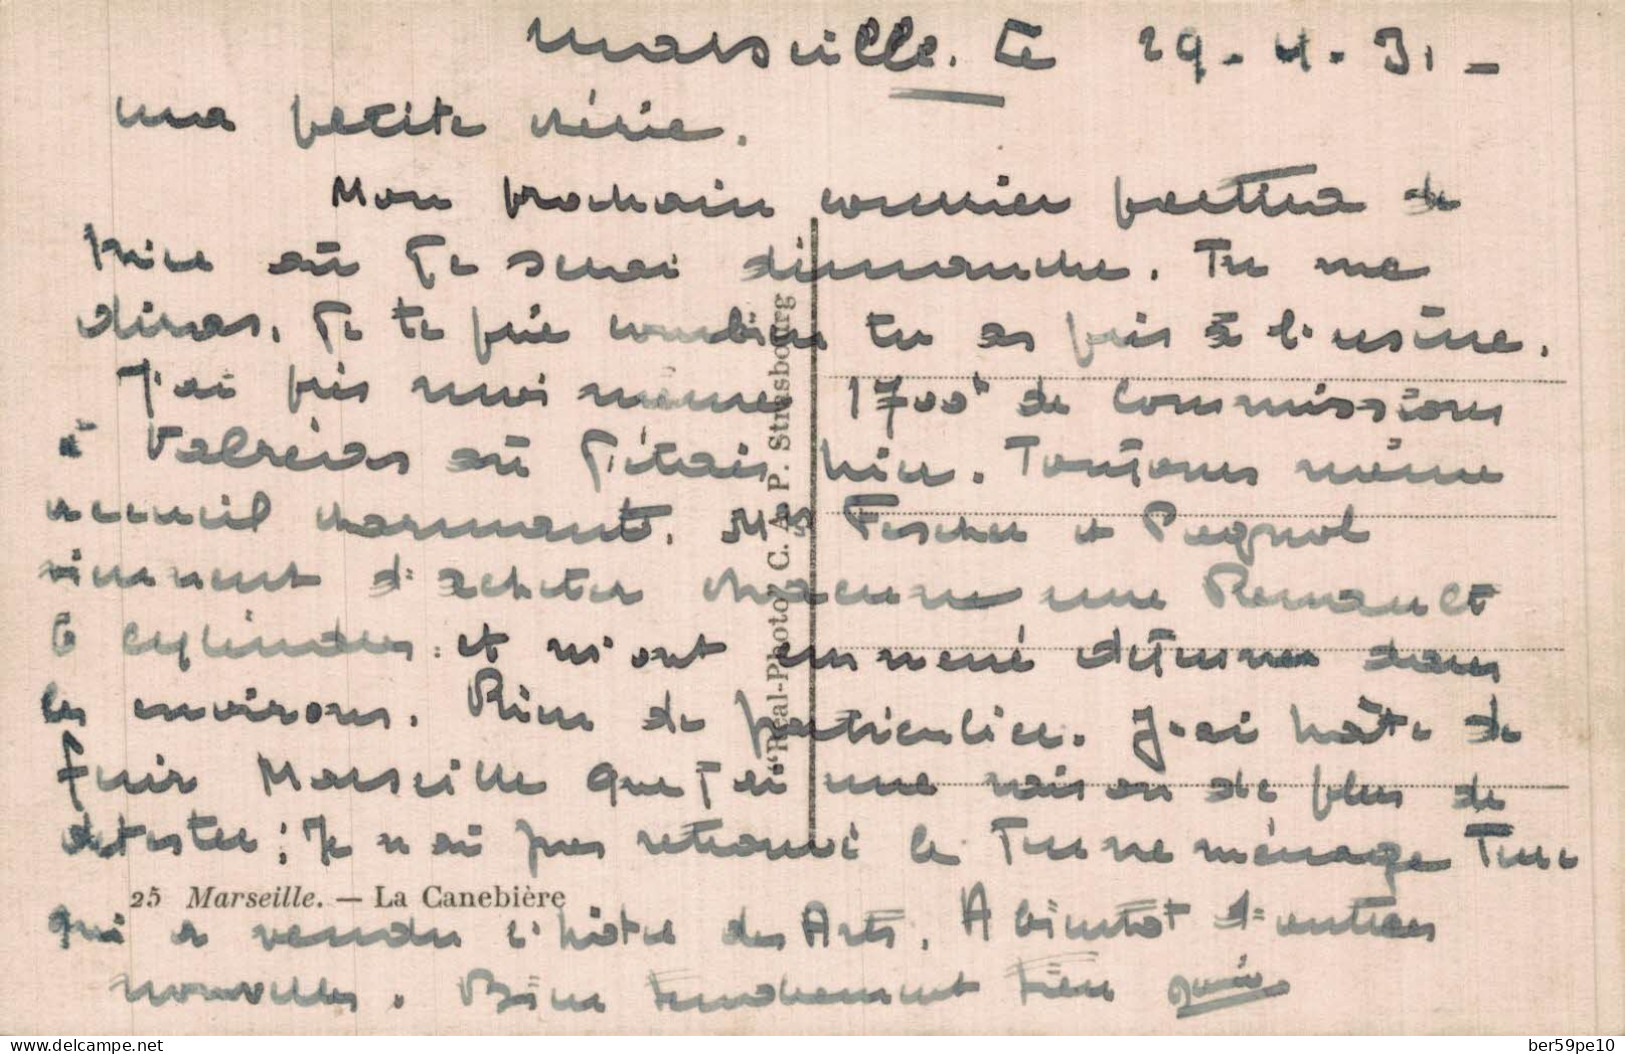 Marseille. le 29-4-31-
ma petite chérie.
Mon prochain courrier partira de
Nice où je serai dimanche. Tu me
diras, je te prie combien tu as pris à l'usine.
J'ai pris moi même 1700f de commissions
à Valréas où j'étais hier. Toujours même
accueil charmant. Mrs Fischer et Pagnol
viennent d'acheter chacun une Renault
6 cylindres. et m'ont emmené déjeuner dans
les environs. Rien de particulier. J'ai hâte de
fuir Marseille que j'ai une raison de plus de
détester ; je n'ai pas retrouvé le ménage
25 Marseille. — La Canebière
qui a vendu l'hôtel des Arts. A bientôt d'autres
nouvelles. Bien tendrement tien
"Real-Photo" C. A. P. Strasbourg
delcampe.net
ber59pe10